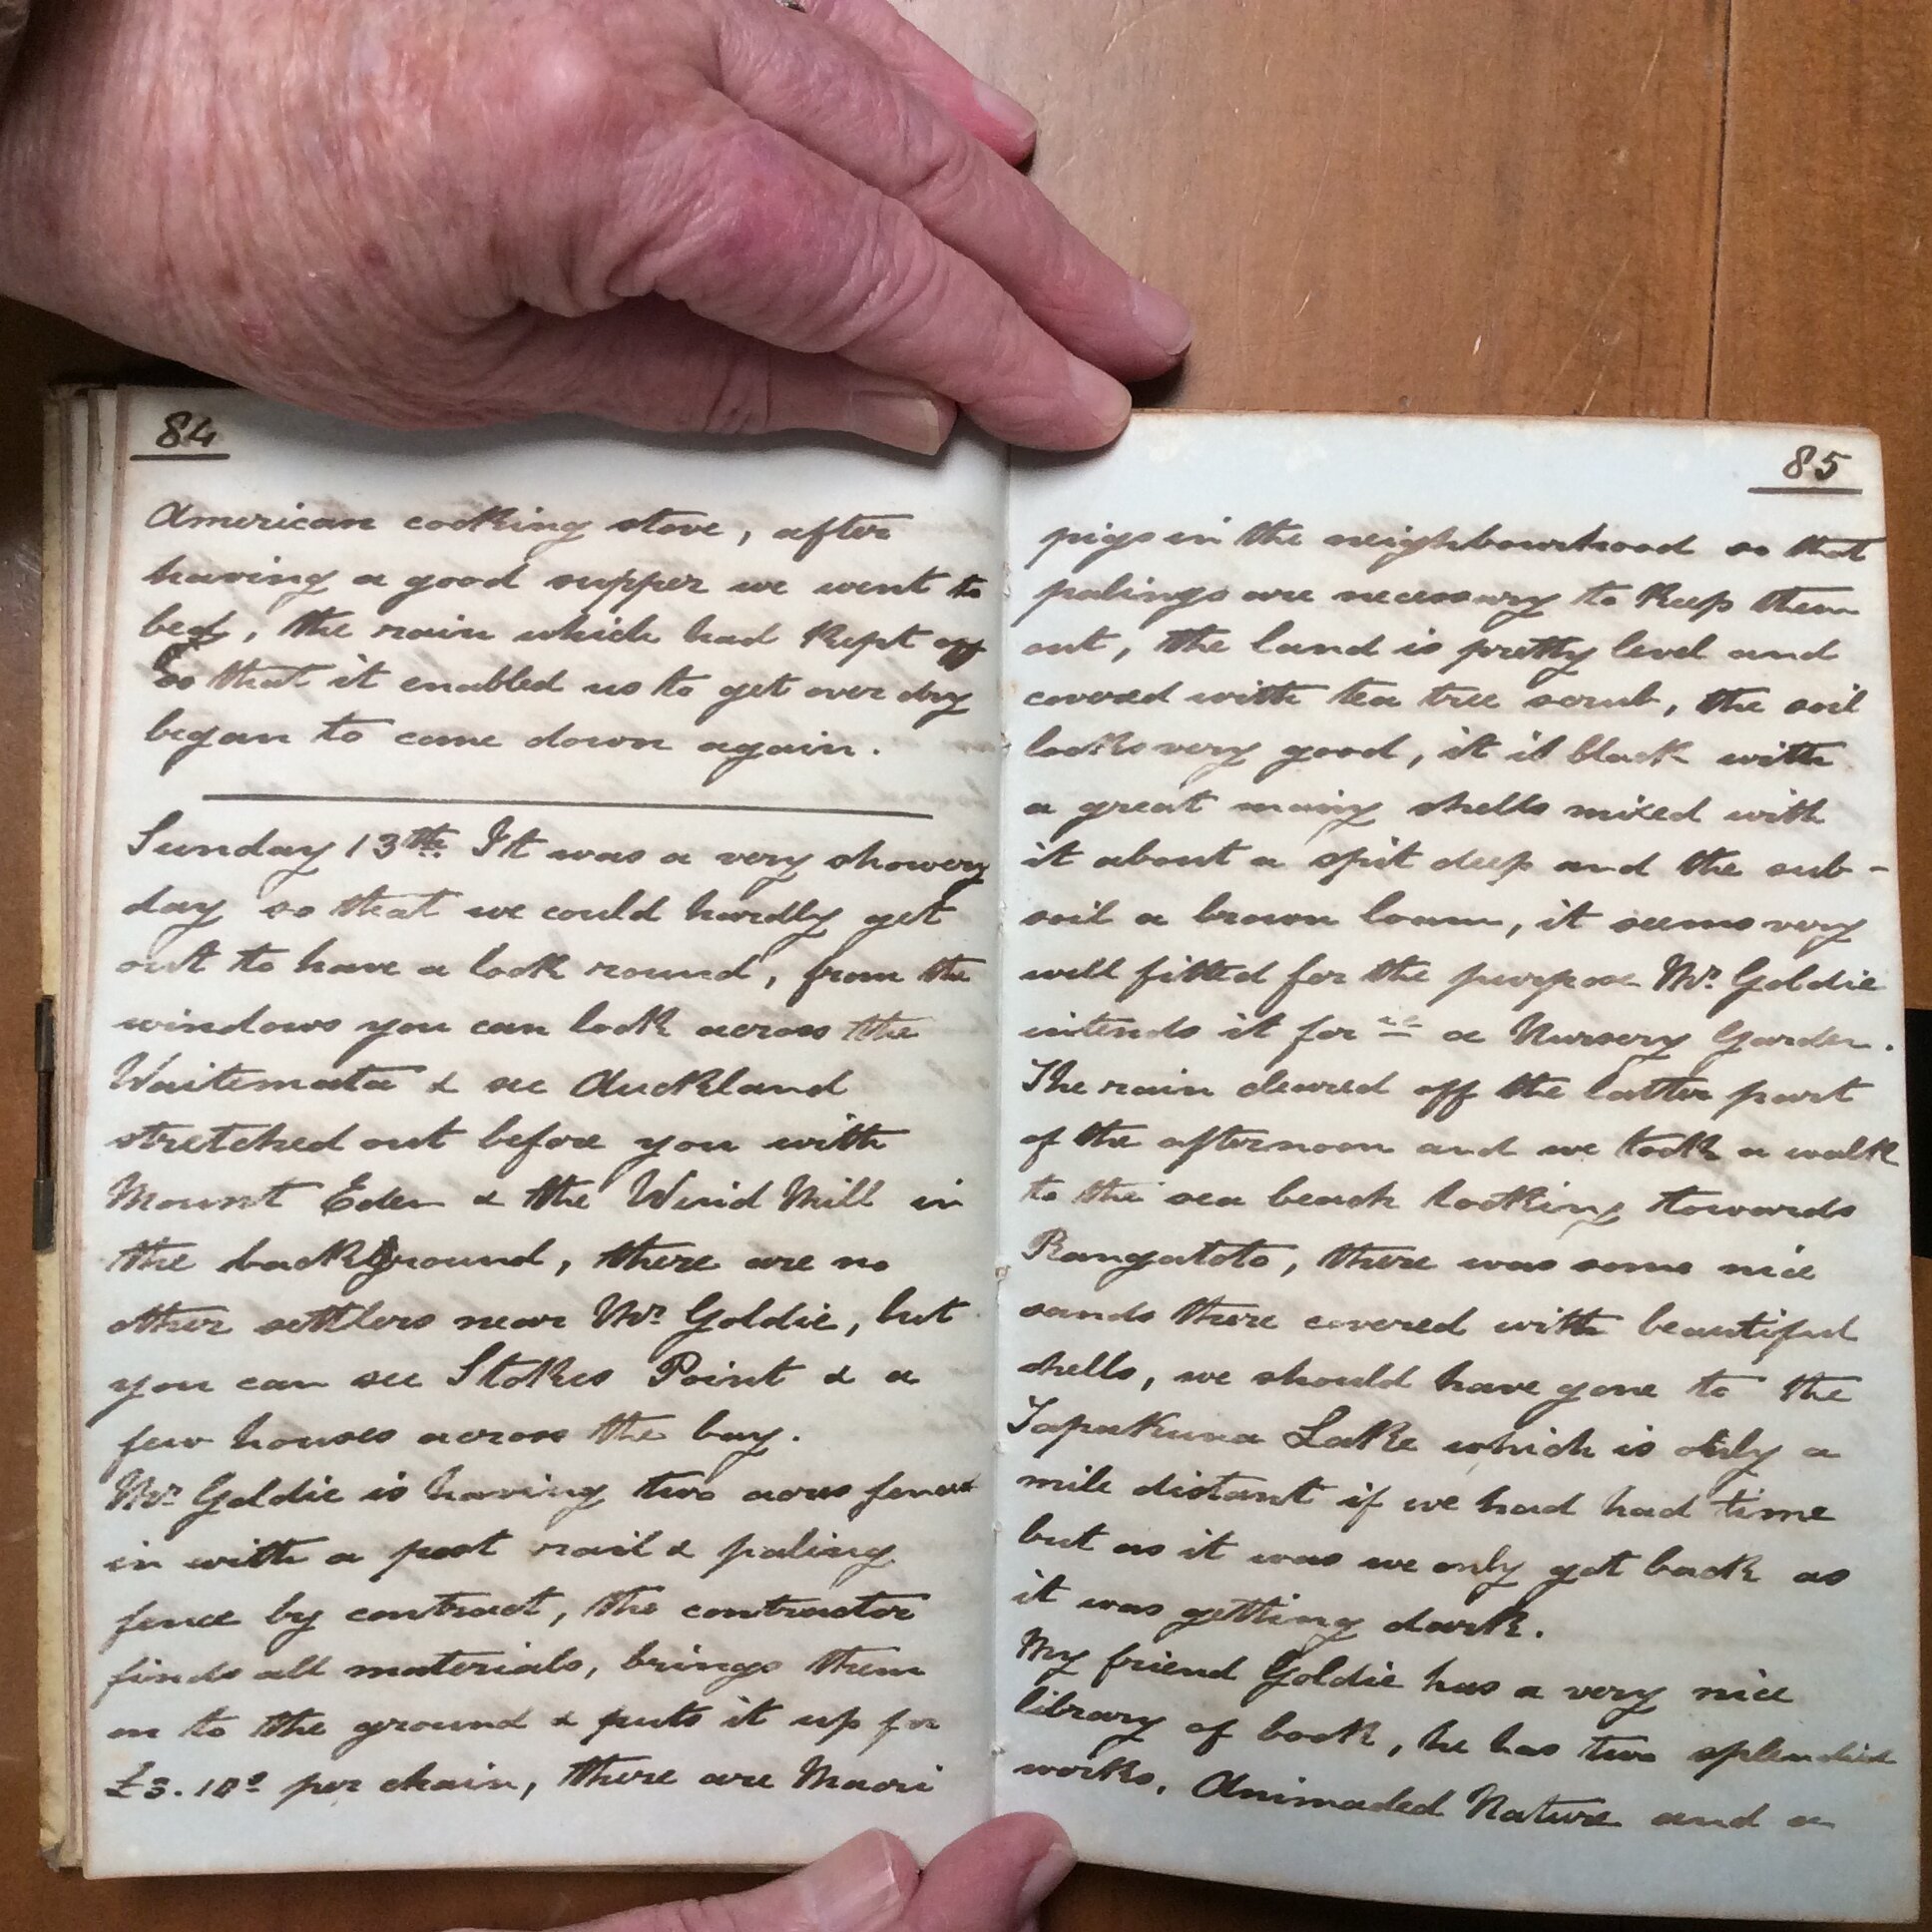 84
American cooking stove, after
having a good supper we went to
bed, the rain which had Kept off
so that it enabled us to get over dry
began to come down again.
Sunday 13th. It was a very showery
day so that we could hardly get
out to have a look round, from the
windows you can look across the
Waitemata & see Auckland
stretched out before you with
Mount Eden & the Wind Mill in
the background, there are no
other settlers near Mr. Goldie, but
you can see Stokes Point & a
few houses across the bay.
Mr. Goldie is having two acres fenced
in with a post rail & paling
fence by contract, the contractor
finds all materials, brings them
on to the ground & puts it up for
£3.10s per chain, there are Maori
85
pigs in the neighbourhood so that
palings are necessary to Keep them
out, the land is pretty level and
covered with tea tree scrub, the soil
looks very good, it is black with
a great many shells mixed with
it about a spit deep and the sub-
soil a brown loam, it seems very
well fitted for the purpose Mr. Goldie
intends it for as a Nursery Garden.
The rain cleared off the latter part
of the afternoon and we took a walk
to the sea beach looking towards
Rangatoto, there was some nice
sands there covered with beautiful
shells, we should have gone to the
Tapakuna Lake which is only a
mile distant if we had had time
but as it was we only got back as
it was getting dark.
My friend Goldie has a very nice
library of book, he has two splendid
works, Animaded Nature and a